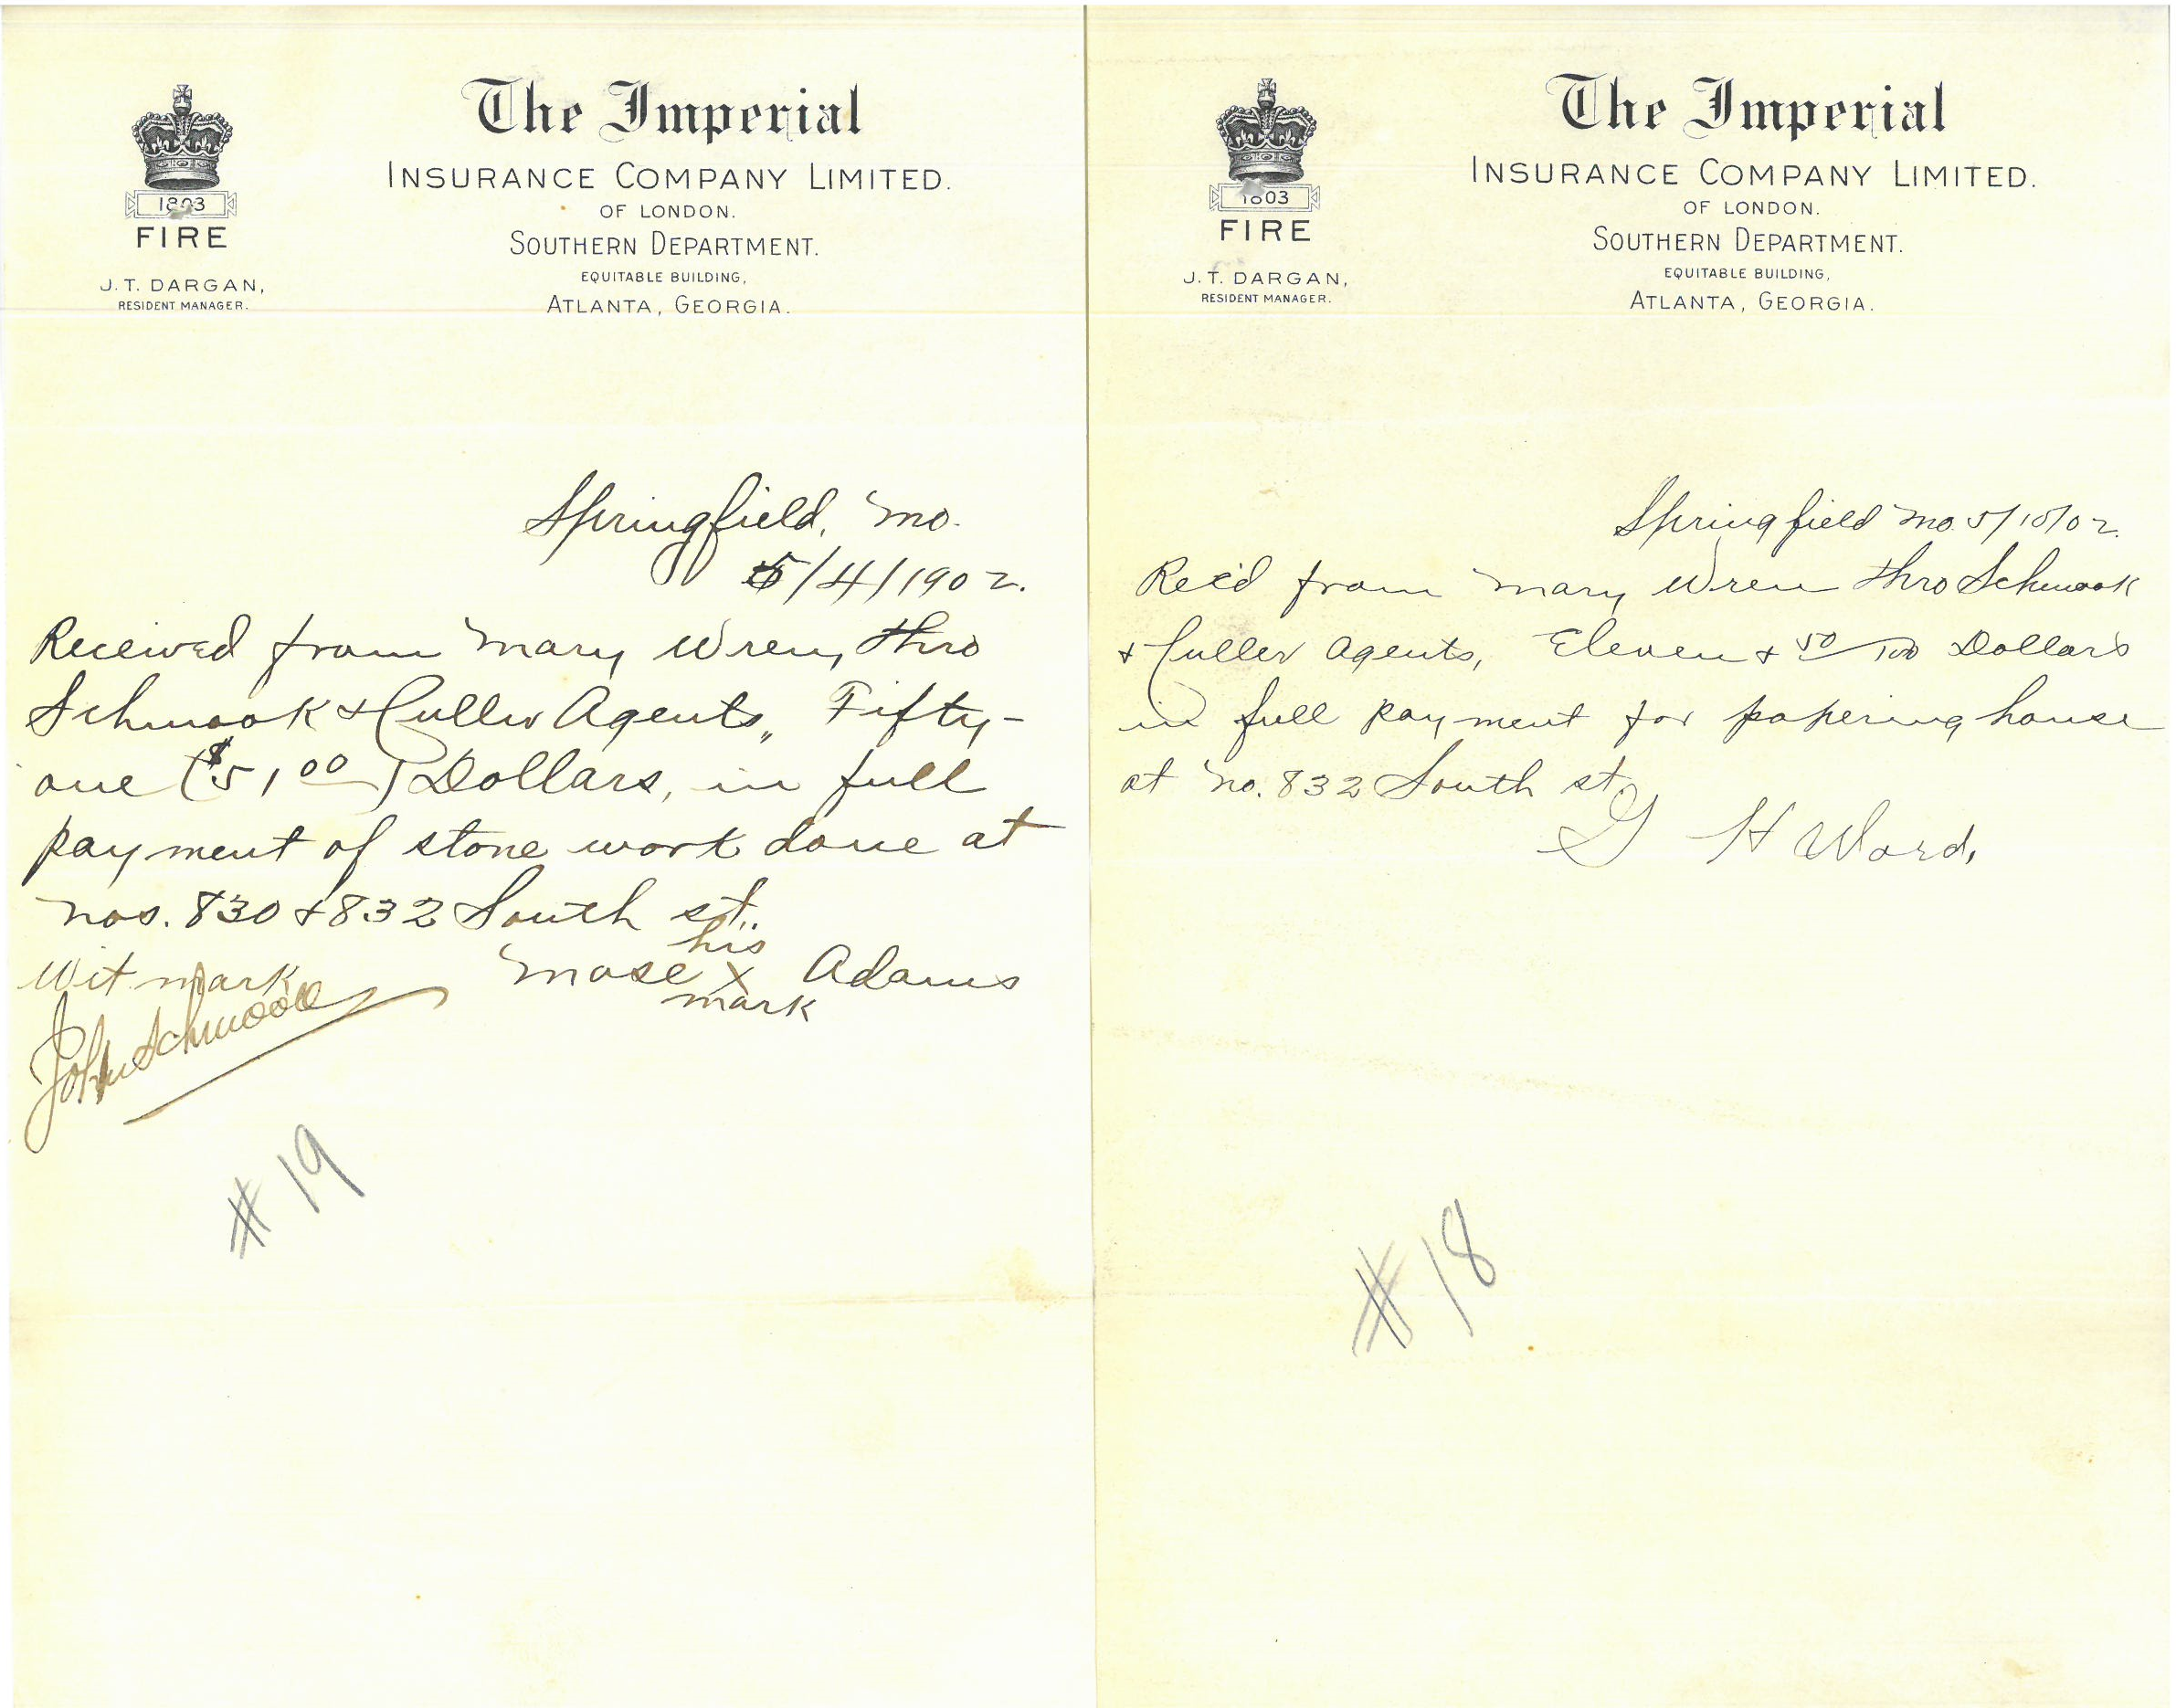 The Imperial
INSURANCE COMPANY LIMITED.
OF LONDON.
SOUTHERN DEPARTMENT.
EQUITABLE BUILDING,
ATLANTA, GEORGIA.
1803
FIRE
J. T. DARGAN,
RESIDENT MANAGER.
Springfield, Mo.
5/4/1902.
Received from Mary Wren, thro
Schmook & Culler Agents,, Fifty-
one ($51 00) Dollars, in full
payment of stone work done at
Nos. 830 & 832 South st..
his
Wit mark Mose X Adams
mark
John Schmook
# 19
The Imperial
INSURANCE COMPANY LIMITED.
OF LONDON.
SOUTHERN DEPARTMENT.
EQUITABLE BUILDING,
ATLANTA, GEORGIA.
1803
FIRE
J. T. DARGAN,
RESIDENT MANAGER.
Springfield Mo. 5/10/02.
Rec'd from Mary Wren thro Schmook
& Culler Agents, Eleven & 50/100 Dollars
in full payment for papering house
at No. 832 South st.
G H Ward,
# 18